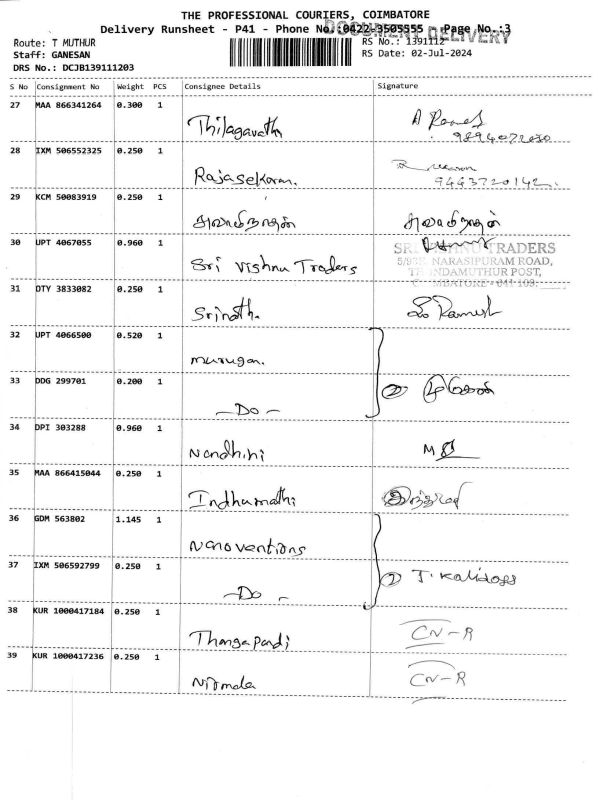 THE PROFESSIONAL COURIERS, COIMBATORE
Delivery Runsheet - P41 - Phone No.:0422-3505555 Page No.:3
DOCUMENT DELIVERY
Route: T MUTHUR RS No.: 1391112
Staff: GANESAN RS Date: 02-Jul-2024
DRS No.: DCJB139111203
S No Consignment No Weight PCS Consignee Details Signature
27 MAA 866341264 0.300 1
Thilagavathi A Ramesh
9894072050
28 IXM 506552325 0.250 1
Rajasekaran.
9443720142
29 KCM 50083919 0.250 1
சுவாமிநாதன் சுவாமிநாதன்
30 UPT 4067055 0.960 1
Sri Vishnu Traders
SRI VISHNU TRADERS
NARASIPURAM ROAD,
THONDAMUTHUR POST,
31 DTY 3833082 0.250 1
Srinath. Ramesh
32 UPT 4066500 0.520 1
murugan.
33 DDG 299701 0.200 1
-Do- ②
34 DPI 303288 0.960 1
Nandhini M
35 MAA 866415044 0.250 1
Indhumathi இந்துமதி
36 GDM 563802 1.145 1
Nanoventions
37 IXM 506592799 0.250 1
-Do- ② T. Kalidoss
38 KUR 1000417184 0.250 1
Thangapandi CN-R
39 KUR 1000417236 0.250 1
Nirmala CN-R